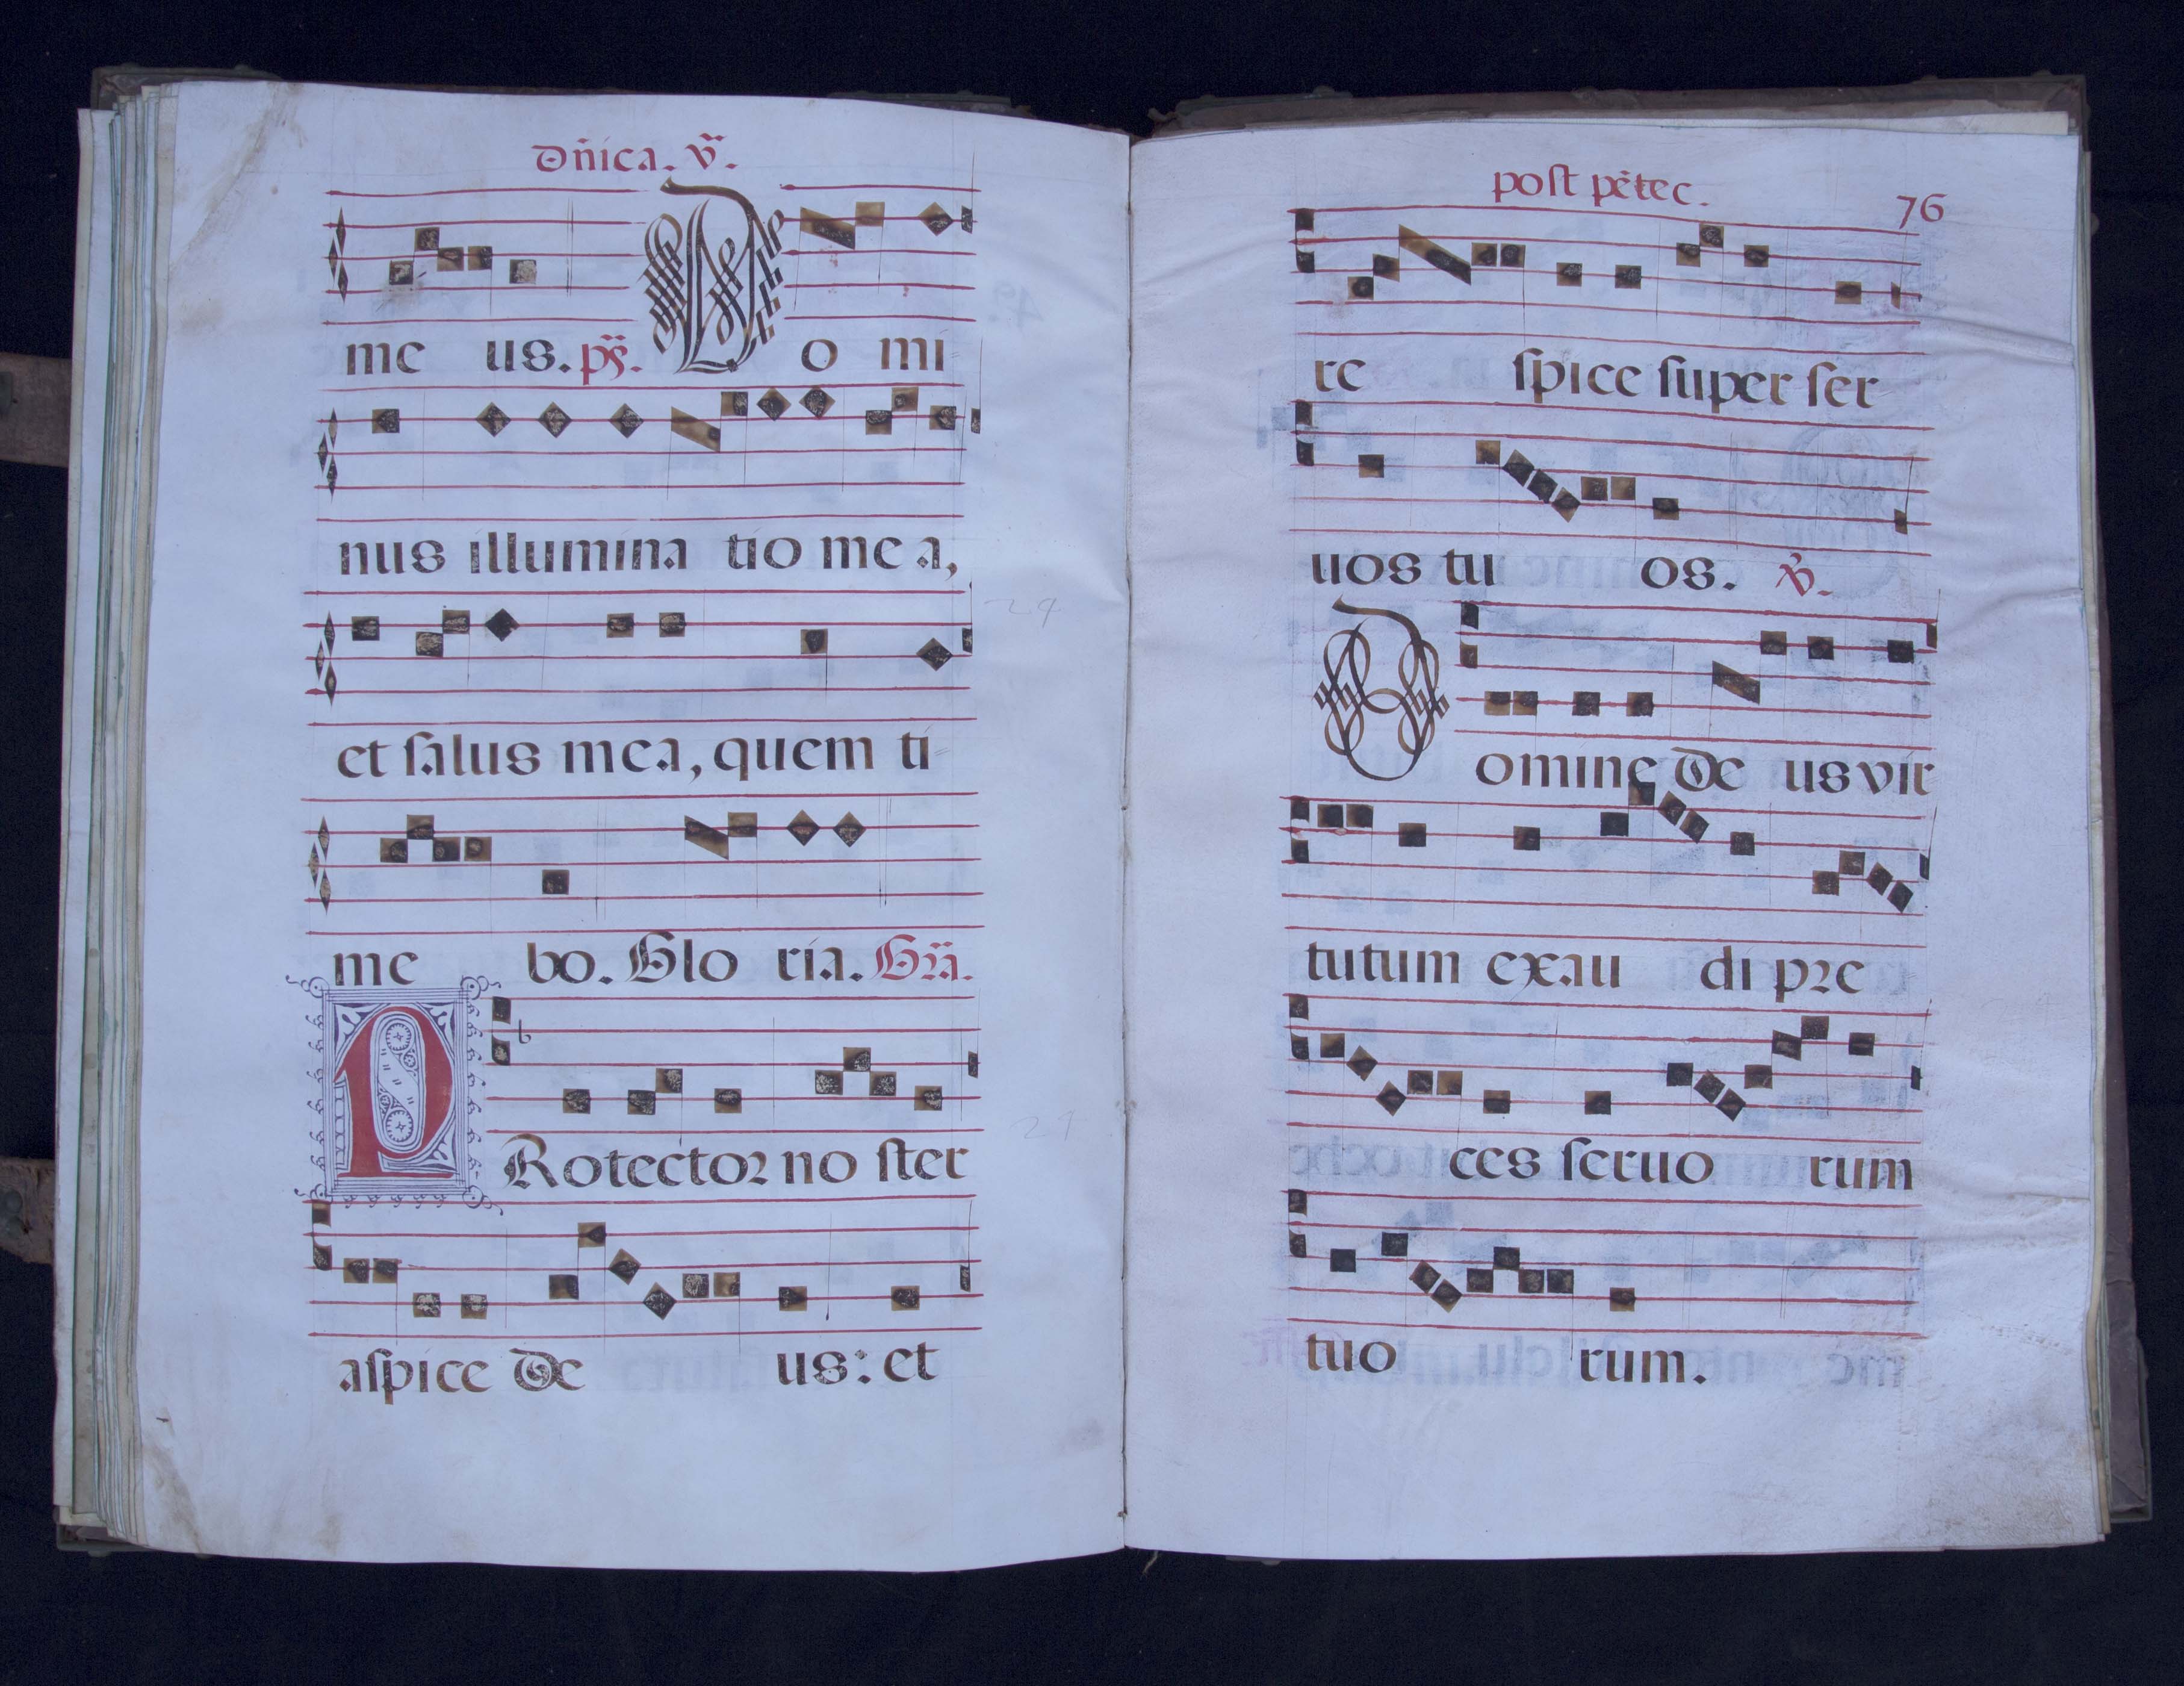 Dñica. v̄.
me us. ps̄. D o mi
nus illumina tio me a,
et ſalus mea, quem ti
me bo. Glo ria. Gr̄a.
PRotector no ſter
aſpice de us: et
poſt pētec. 76
re ſpice ſuper ſer
uos tu os. v̄.
Domine de us vir
tutum exau di pre
ces ſeruo rum
tuo rum.